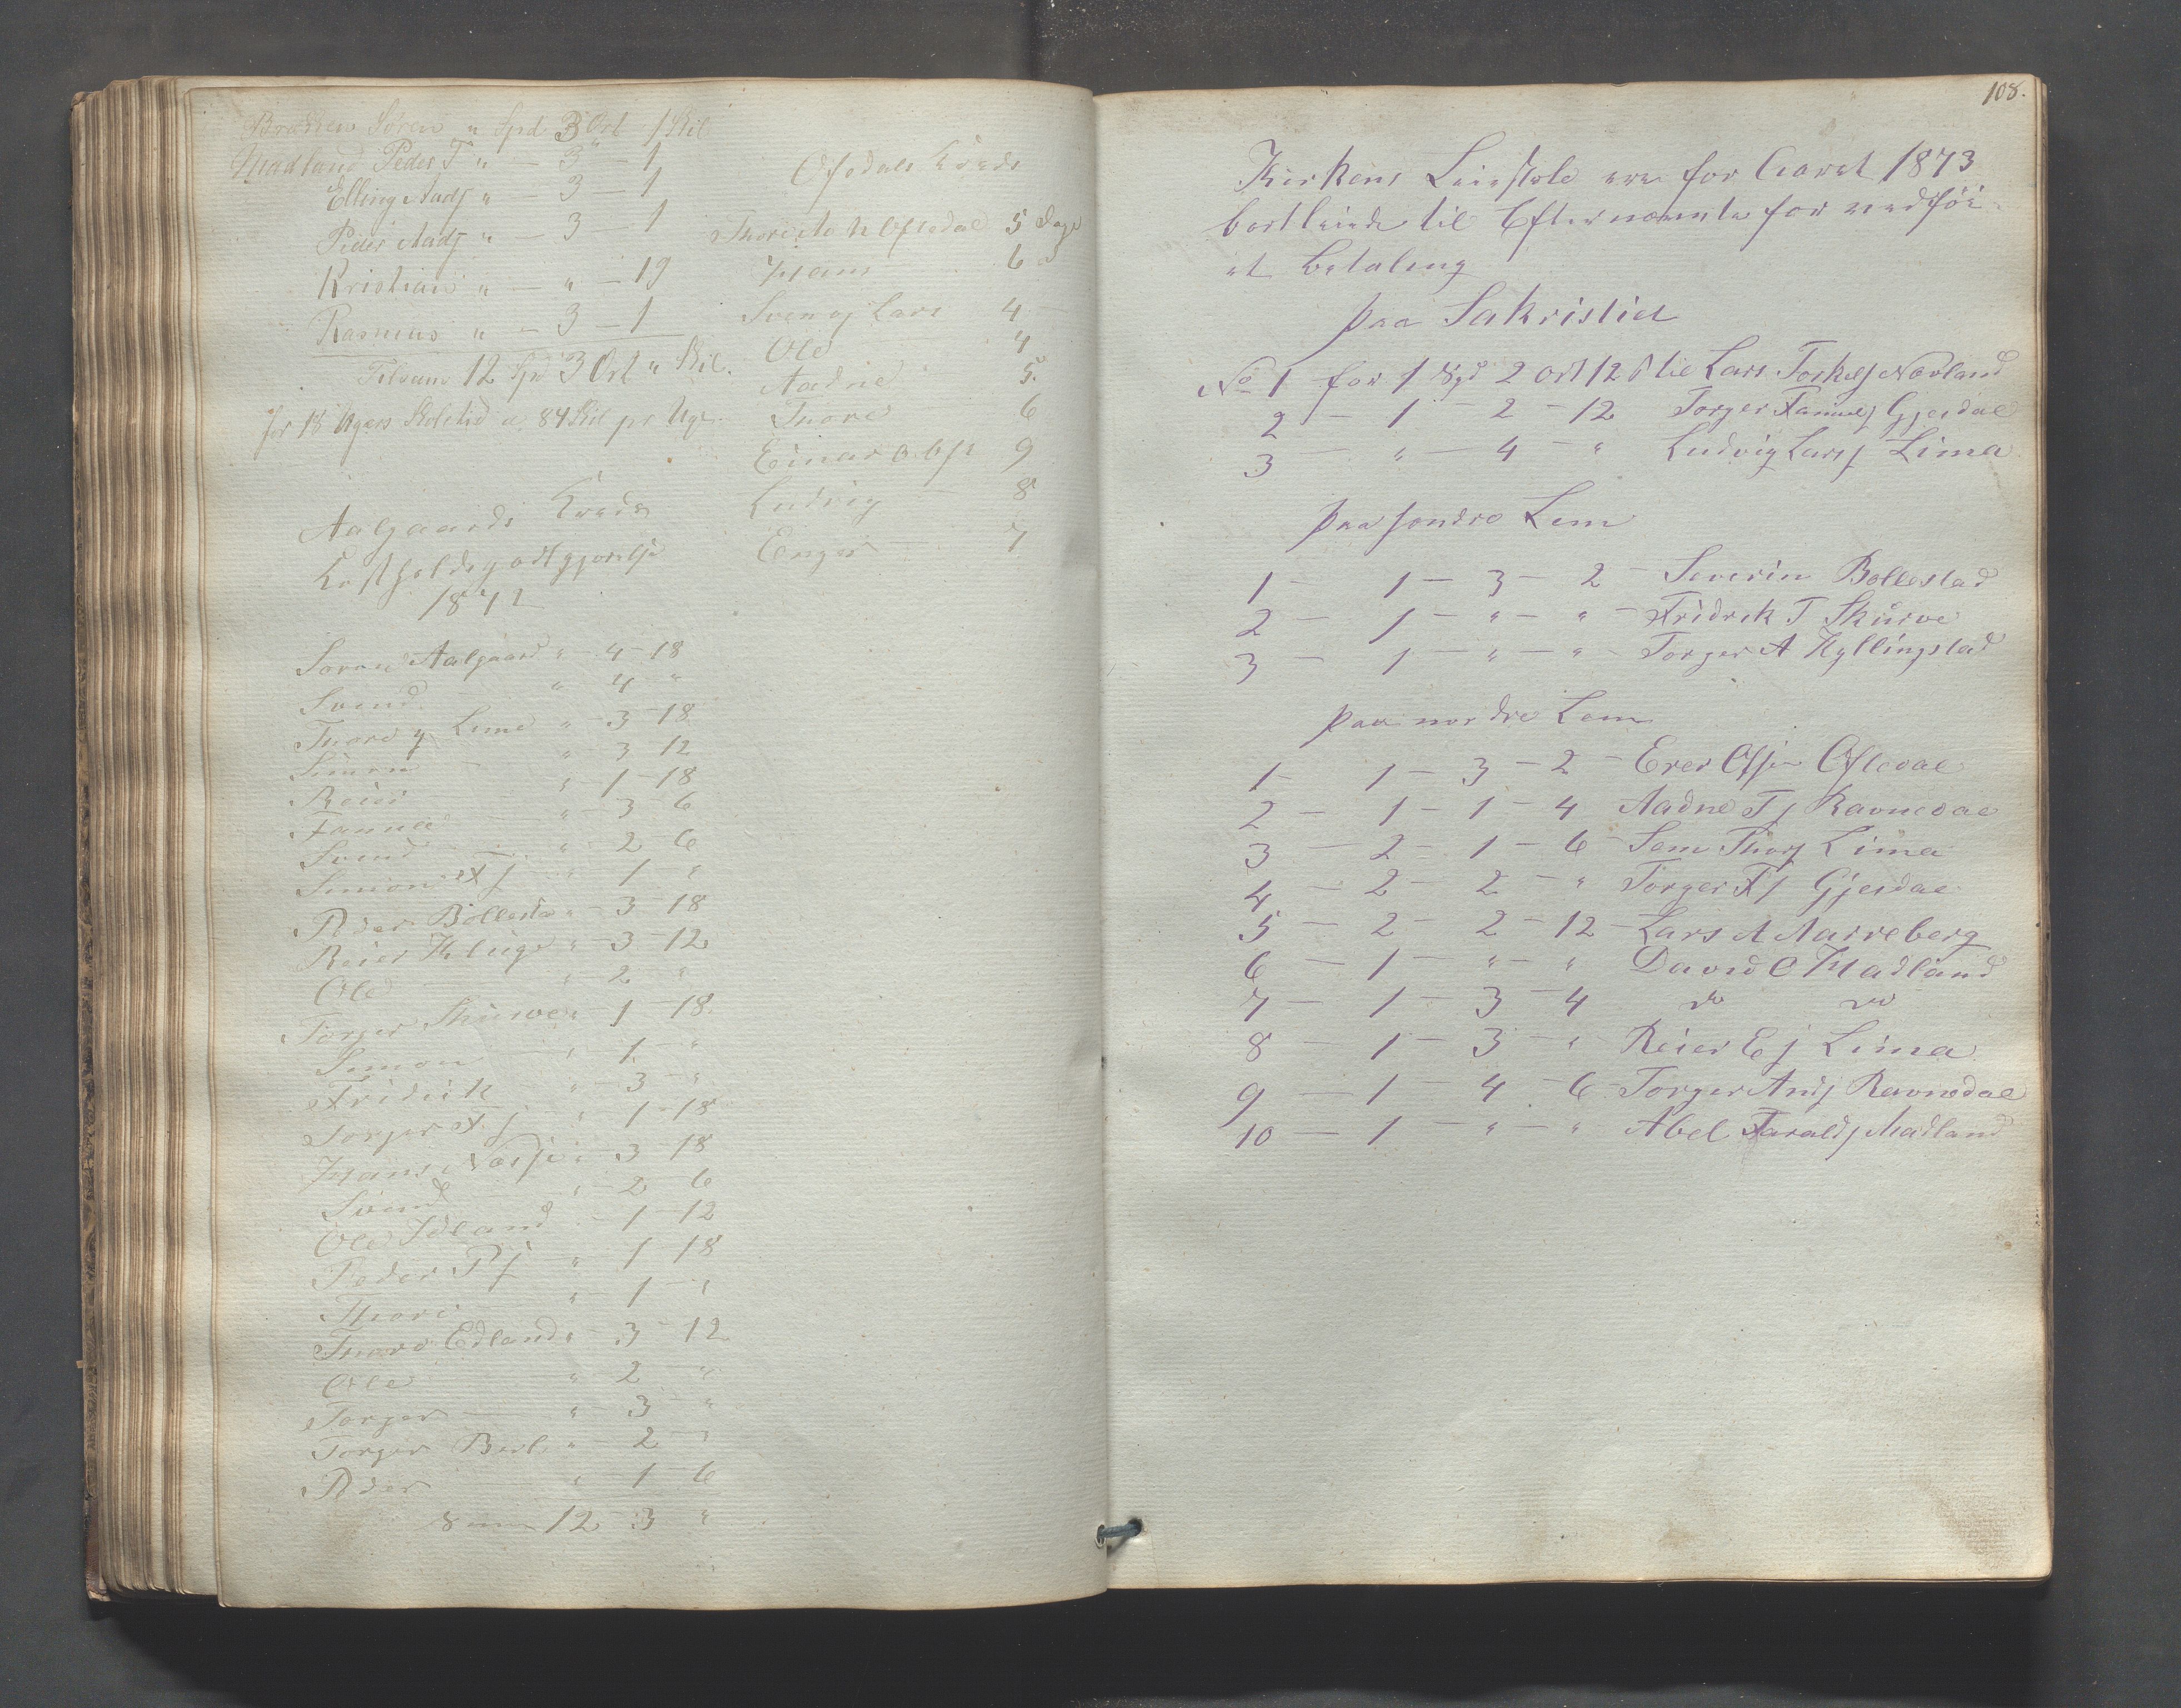 Bråtten Søren " Spd 3 Ort 1 Skil
Madland Peder T " — 3 — 1
Elling Aadj " — 3 — 1
Peder Aadj " — 3 — 1
Kristian " — " — 19
Rasmus " — 3 — 1
Tilsam 12 Spd 3 Ort " Skil.
for 18 Ugers Skoletid a 84 Skil pr Uge.
Aalgaards Kreds
Kostholdsgodtgjørelse
1872
Søren Aalgaard " 4 - 18
Svend " 4 "
Thore Lima " - 3 - 18
Simon — " 3 12
Reier " - 1 - 18
Samuel — " - 3 - 6
Svend — " - 2 - 6
Simon S " 1 "
Peder Bollesta " - 3 - 18
Reier Kluge " - 3 - 12
Ole — " 2 "
Torger Skurve " - 1 - 18
Simon — " 1 - "
Fridrik " - 3 - "
Torger " 1 - 18
Hans Næsse " - 3 - 18
Svend " - 2 - 6
Ole Idland - 1 - 12
Peder P " 1 - 18
Thore " - 1 - "
Thore Edland " - 3 - 12
Ole " - 2 "
Torger — " - 3 - "
Torger Berl " - 2 - "
Peder " 1 6
Sum 12 - 3 "
Ofsdals Kreds
Thore Ofsedal 5 Dage
Hans — 6 d
Sven og Lars 4 —
Ole 4
Aadne 5.
Thore 6
Einar O. Ofs 9
Ludvig — 8
Enger — 7
108.
Kirkens Leiestole ere for Aaret 1873
bortleiede til Efternævnte for vedføi-
et Betaling
paa Sakristiet
No 1 for 1 Spd 2 Ort 12 s til Lars Torkelj Norland
2 — 1 — 2 — 12 Torger Samuelj Gjesdal
3 — " — 4 — " Ludvig Larsj Lima
paa søndre Lem
1 — 1 — 3 — 2 — Severin Bollestad
2 — 1 — " — " — Fridrik T Skurve
3 — 1 — " — " — Torger A Kyllingstad
paa nordre Lem
1 — 1 — 3 — 2 — Ofsedal
2 — 1 — 1 — 4 Aadne Tj Ravnedal
3 — 2 — 1 — 6 — Sem Thorj Lima
4 — 2 — 2 — " Torger Sj Gjesdal
5 — 2 — 2 — 12 — Lars A Aarreberg
6 — 1 — " — " David O Madland
7 — 1 — 3 — 4 do do
8 — 1 — 3 — " Reier Ej Lima
9 — 1 — 4 — 6 — Torger Andj Ravnedal
10 — 1 — " — " Abel Taraldj Madland